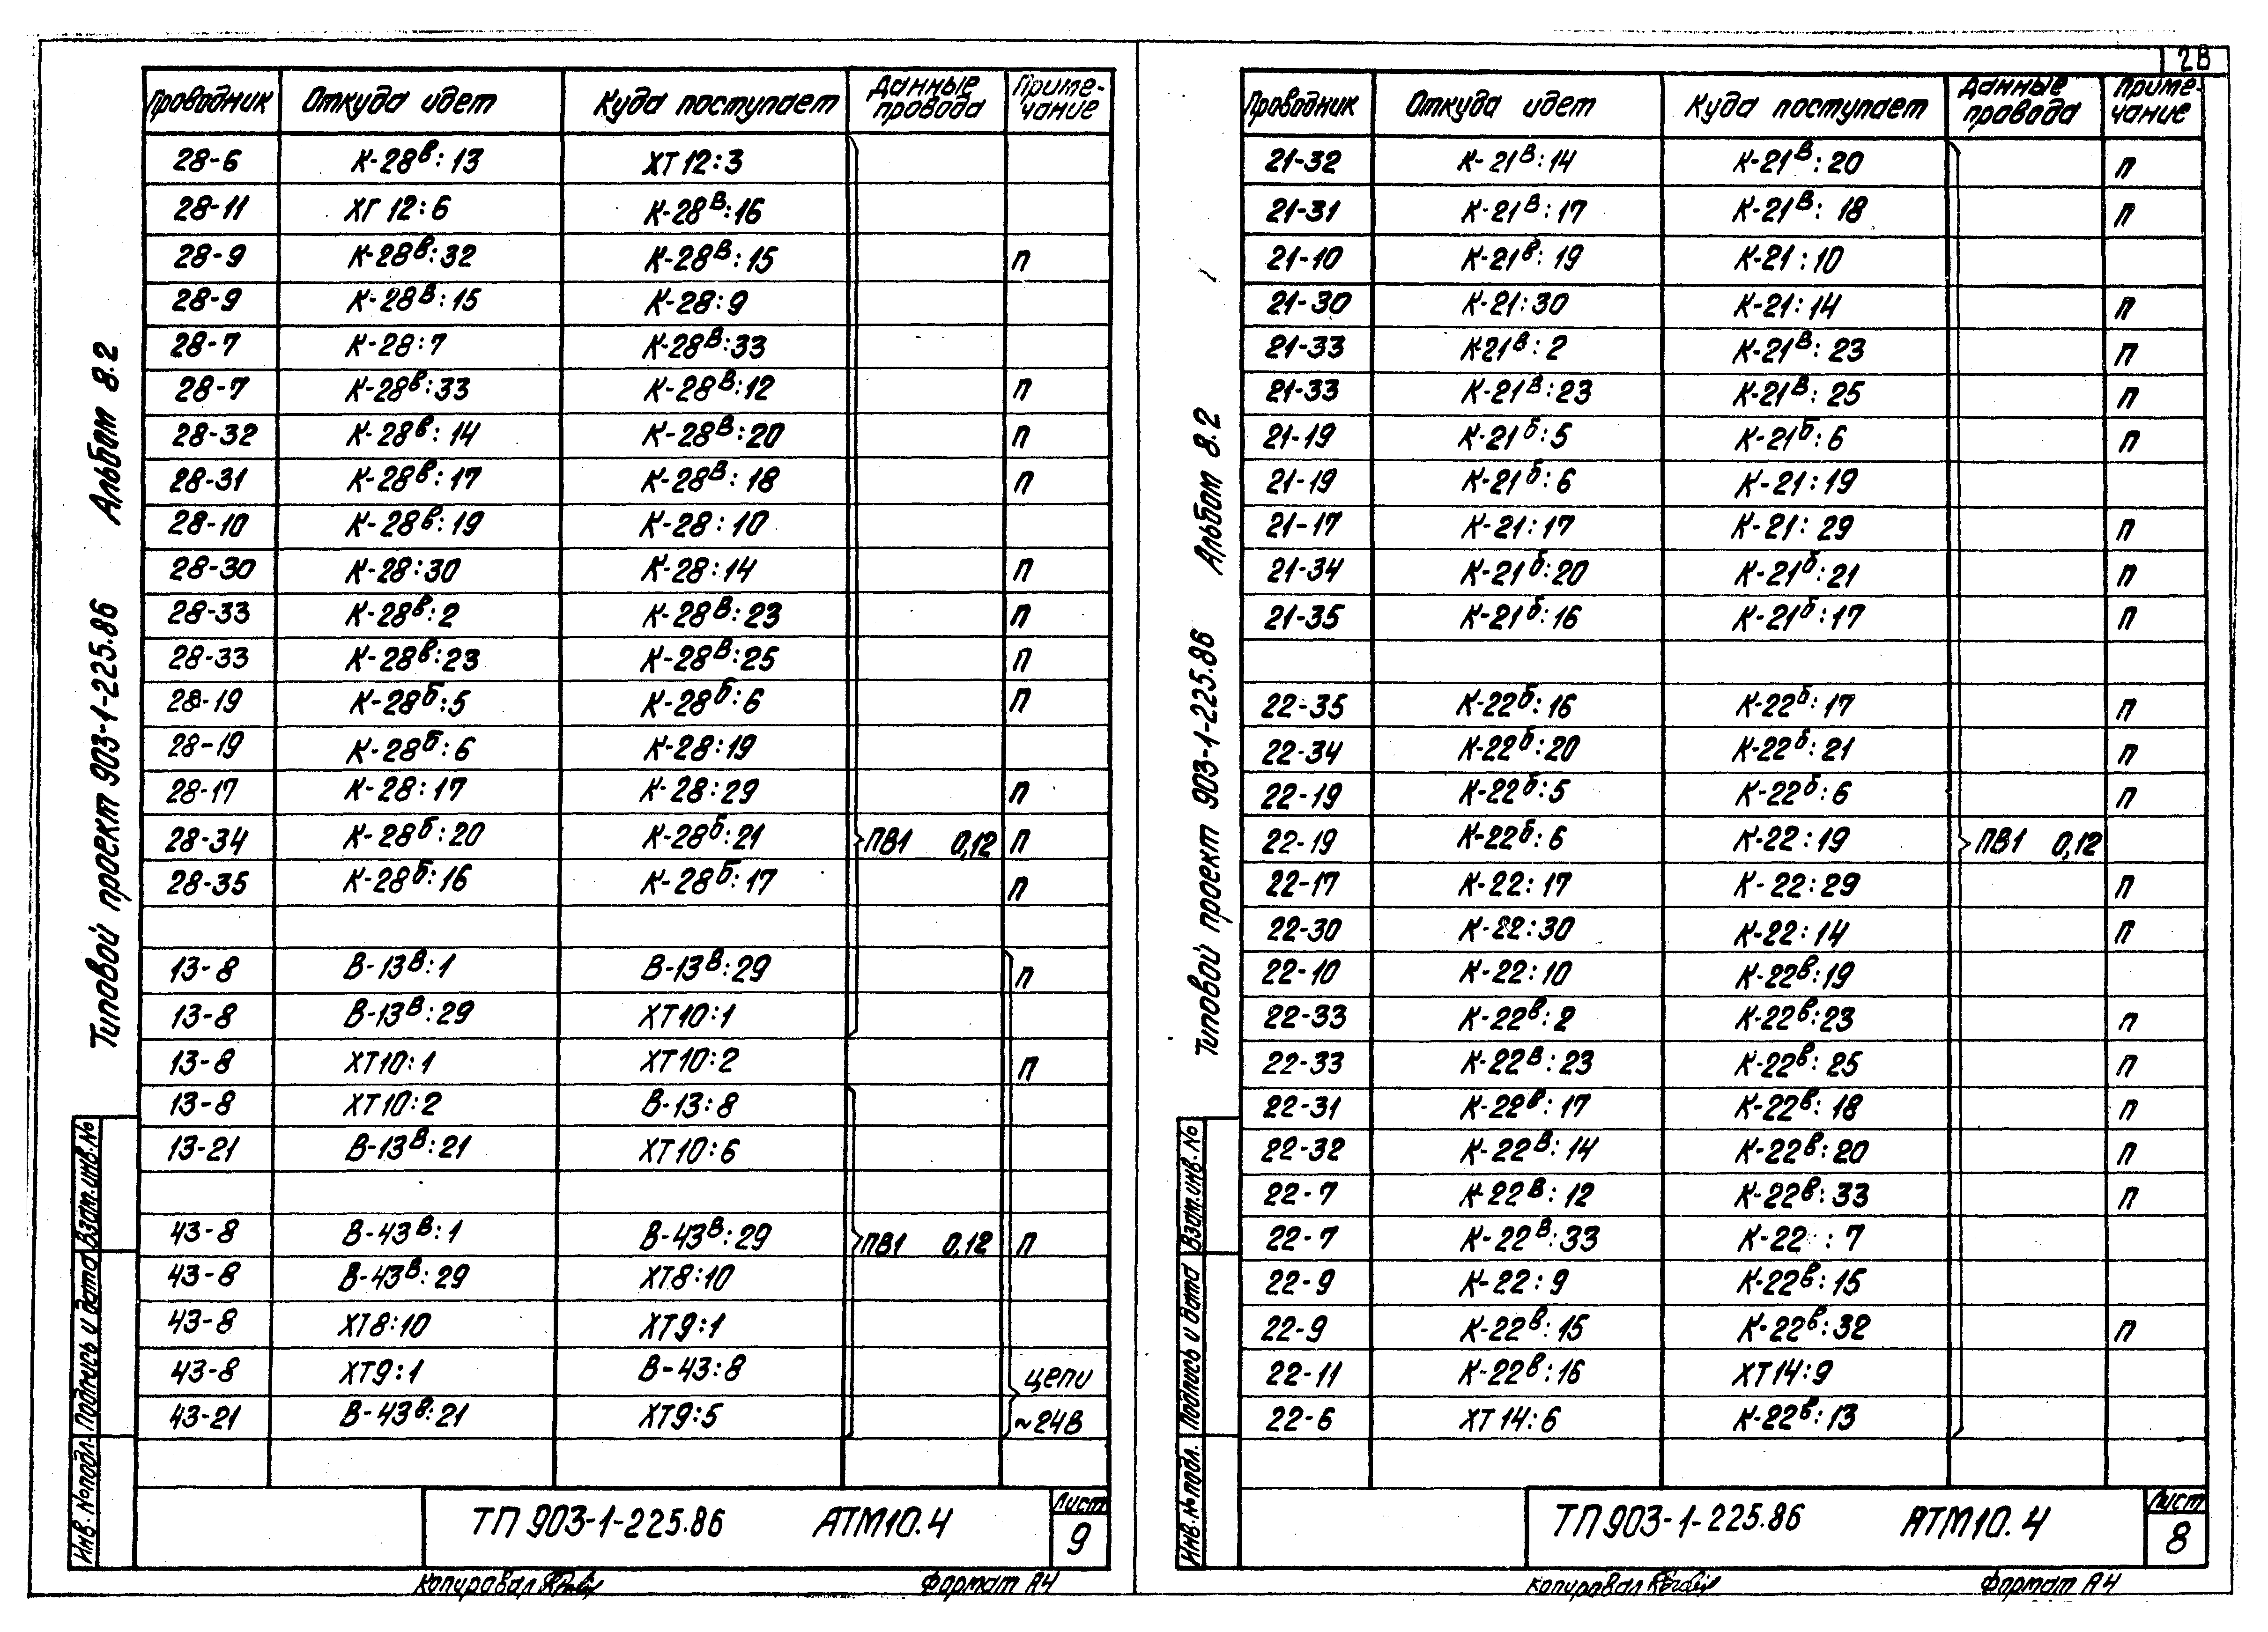 28
Проводник Откуда идет Куда поступает Данные провода Примечание
28-6 К-28ᴮ:13 ХТ12:3
28-11 ХГ 12:6 К-28ᴮ:16
28-9 К-28ᴮ:32 К-28ᴮ:15 П
28-9 К-28ᴮ:15 К-28:9
28-7 К-28:7 К-28ᴮ:33
28-7 К-28ᴮ:33 К-28ᴮ:12 П
28-32 К-28ᴮ:14 К-28ᴮ:20 П
28-31 К-28ᴮ:17 К-28ᴮ:18 П
28-10 К-28ᴮ:19 К-28:10
28-30 К-28:30 К-28:14 П
28-33 К-28ᴮ:2 К-28ᴮ:23 П
28-33 К-28ᴮ:23 К-28ᴮ:25 П
28-19 К-28ᵟ:5 К-28ᵟ:6 П
28-19 К-28ᵟ:6 К-28:19
28-17 К-28:17 К-28:29 П
28-34 К-28ᵟ:20 К-28ᵟ:21 ПВ1 0,12 П
28-35 К-28ᵟ:16 К-28ᵟ:17 П
13-8 В-13ᴮ:1 В-13ᴮ:29 П
13-8 В-13ᴮ:29 ХТ10:1
13-8 ХТ10:1 ХТ10:2 П
13-8 ХТ10:2 В-13:8
13-21 В-13ᴮ:21 ХТ10:6
43-8 В-43ᴮ:1 В-43ᴮ:29 ПВ1 0,12 П
43-8 В-43ᴮ:29 ХТ8:10
43-8 ХТ8:10 ХТ9:1
43-8 ХТ9:1 В-43:8 цепи
43-21 В-43ᴮ:21 ХТ9:5 ~24В
Типовой проект 903-1-225.86 Альбом 8.2
Инв.№подл. Подпись и дата Взам.инв.№
ТП 903-1-225.86 АТМ10.4 Лист
9
Копировал Формат А4
Проводник Откуда идет Куда поступает Данные провода Примечание
21-32 К-21ᴮ:14 К-21ᴮ:20 П
21-31 К-21ᴮ:17 К-21ᴮ:18 П
21-10 К-21ᴮ:19 К-21:10
21-30 К-21:30 К-21:14 П
21-33 К21ᴮ:2 К-21ᴮ:23 П
21-33 К-21ᴮ:23 К-21ᴮ:25 П
21-19 К-21ᵟ:5 К-21ᵟ:6 П
21-19 К-21ᵟ:6 К-21:19
21-17 К-21:17 К-21:29 П
21-34 К-21ᵟ:20 К-21ᵟ:21 П
21-35 К-21ᵟ:16 К-21ᵟ:17 П
22-35 К-22ᵟ:16 К-22ᵟ:17 П
22-34 К-22ᵟ:20 К-22ᵟ:21 П
22-19 К-22ᵟ:5 К-22ᵟ:6 П
22-19 К-22ᵟ:6 К-22:19 ПВ1 0,12
22-17 К-22:17 К-22:29 П
22-30 К-22:30 К-22:14 П
22-10 К-22:10 К-22ᴮ:19
22-33 К-22ᴮ:2 К-22ᴮ:23 П
22-33 К-22ᴮ:23 К-22ᴮ:25 П
22-31 К-22ᴮ:17 К-22ᴮ:18 П
22-32 К-22ᴮ:14 К-22ᴮ:20 П
22-7 К-22ᴮ:12 К-22ᴮ:33 П
22-7 К-22ᴮ:33 К-22:7
22-9 К-22:9 К-22ᴮ:15
22-9 К-22ᴮ:15 К-22ᴮ:32 П
22-11 К-22ᴮ:16 ХТ14:9
22-6 ХТ14:6 К-22ᴮ:13
Типовой проект 903-1-225.86 Альбом 8.2
Инв.№подл. Подпись и дата Взам.инв.№
ТП 903-1-225.86 АТМ10.4 Лист
8
Копировал Формат А4